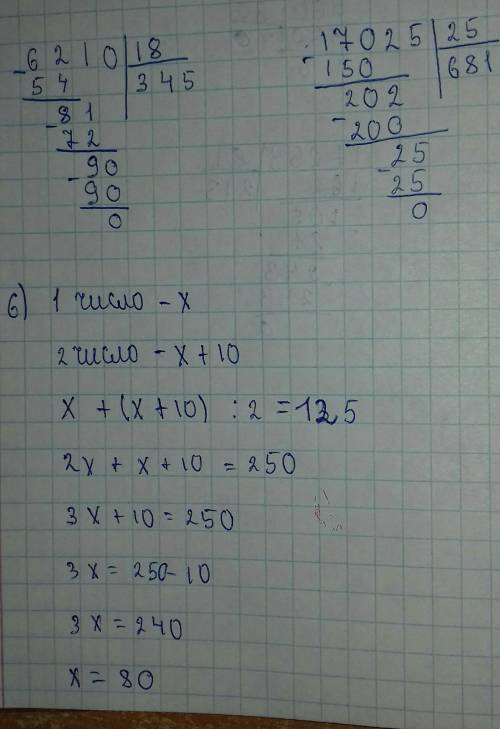 6210 | 18
- 54 | 345
81
- 72
90
- 90
0
17025 | 25
- 150 | 681
202
- 200
25
- 25
0
6) 1 число - x
2 число - x + 10
x + (x + 10) : 2 = 125
2x + x + 10 = 250
3x + 10 = 250
3x = 250 - 10
3x = 240
x = 80